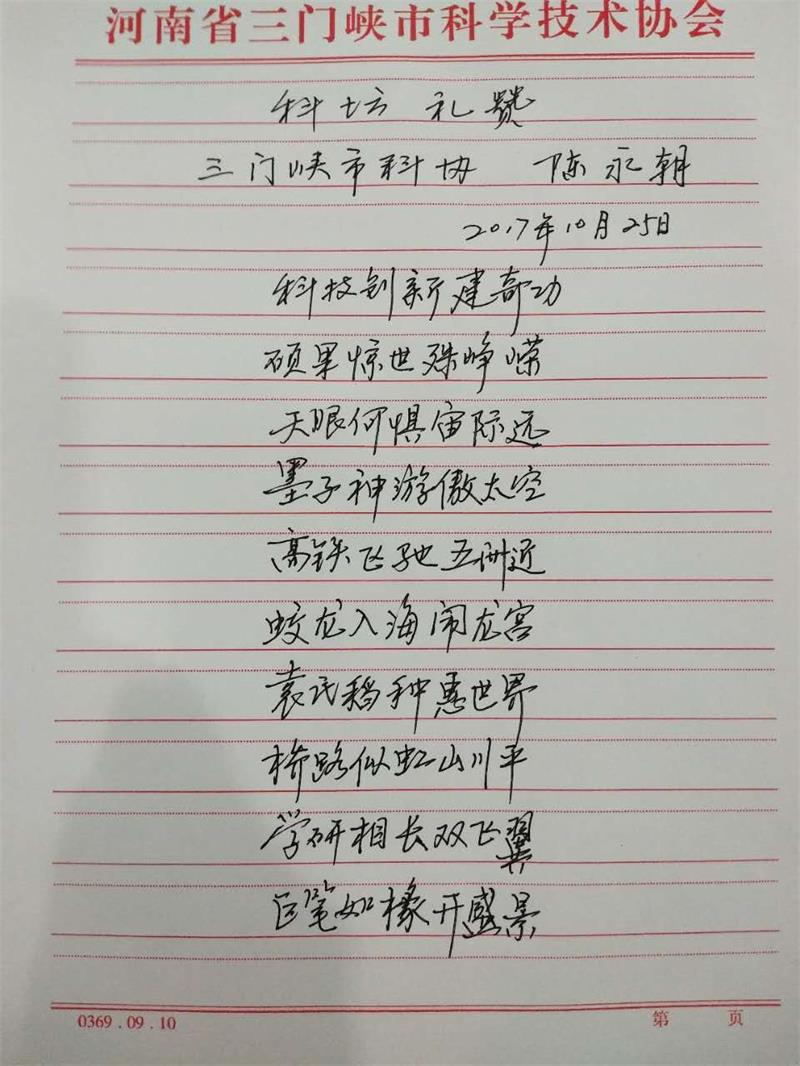 河南省三门峡市科学技术协会
科坛 礼赞
三门峡市科协 陈永朝
2017年10月25日
科技创新建奇功
硕果惊世殊峥嵘
天眼何惧宙际远
墨子神游傲太空
高铁飞驰五洲近
蛟龙入海闹龙宫
袁氏稻种惠世界
桥路似虹山川平
学研相长双飞翼
巨笔如椽开盛景
0369.09.10 第 页